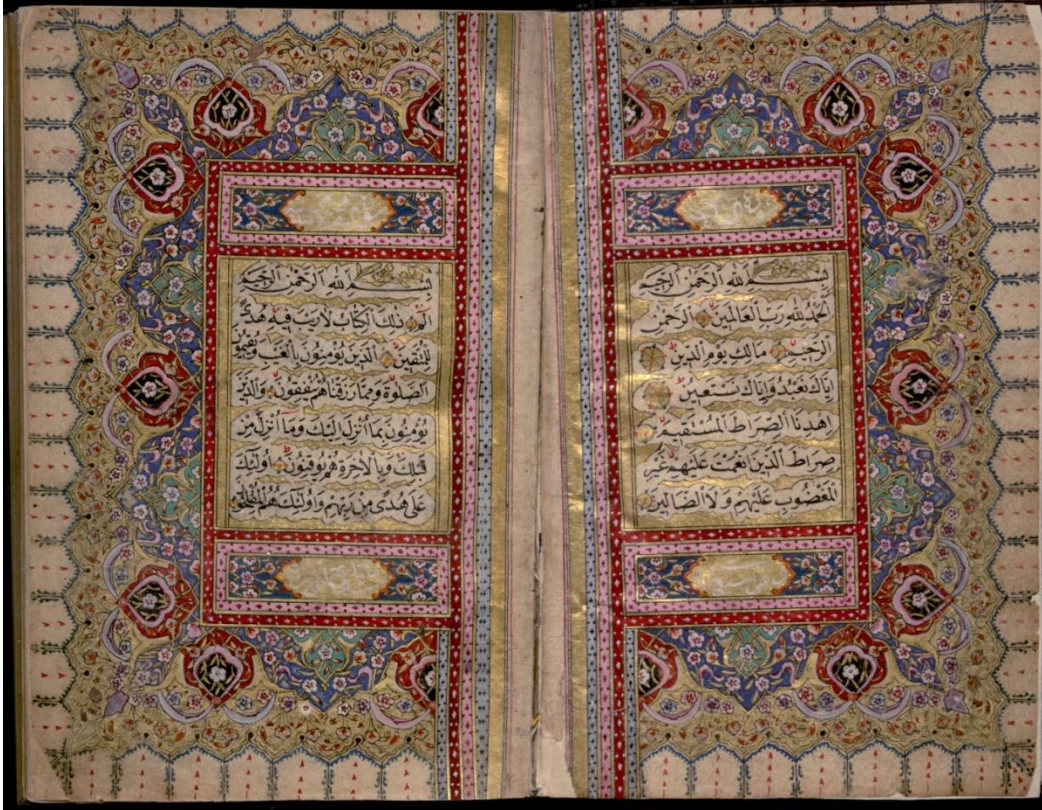 بِسْمِ اللهِ الرَّحْمٰنِ الرَّحِيمِ
اَلْحَمْدُ لِلّٰهِ رَبِّ الْعَالَمِينَ الرَّحْمٰنِ
الرَّحِيمِ مَالِكِ يَوْمِ الدِّينِ
اِيَّاكَ نَعْبُدُ وَاِيَّاكَ نَسْتَعِينُ
اِهْدِنَا الصِّرَاطَ الْمُسْتَقِيمَ
صِرَاطَ الَّذِينَ اَنْعَمْتَ عَلَيْهِمْ غَيْرِ
الْمَغْضُوبِ عَلَيْهِمْ وَلَا الضَّالِّينَ
بِسْمِ اللهِ الرَّحْمٰنِ الرَّحِيمِ
الٓمٓ ذٰلِكَ الْكِتَابُ لَا رَيْبَ فِيهِ هُدًى
لِلْمُتَّقِينَ الَّذِينَ يُؤْمِنُونَ بِالْغَيْبِ وَيُقِيمُونَ
الصَّلٰوةَ وَمِمَّا رَزَقْنَاهُمْ يُنْفِقُونَ وَالَّذِينَ
يُؤْمِنُونَ بِمَا اُنْزِلَ اِلَيْكَ وَمَا اُنْزِلَ مِنْ
قَبْلِكَ وَبِالْاٰخِرَةِ هُمْ يُوقِنُونَ اُولٰئِكَ
عَلٰى هُدًى مِنْ رَبِّهِمْ وَاُولٰئِكَ هُمُ الْمُفْلِحُونَ